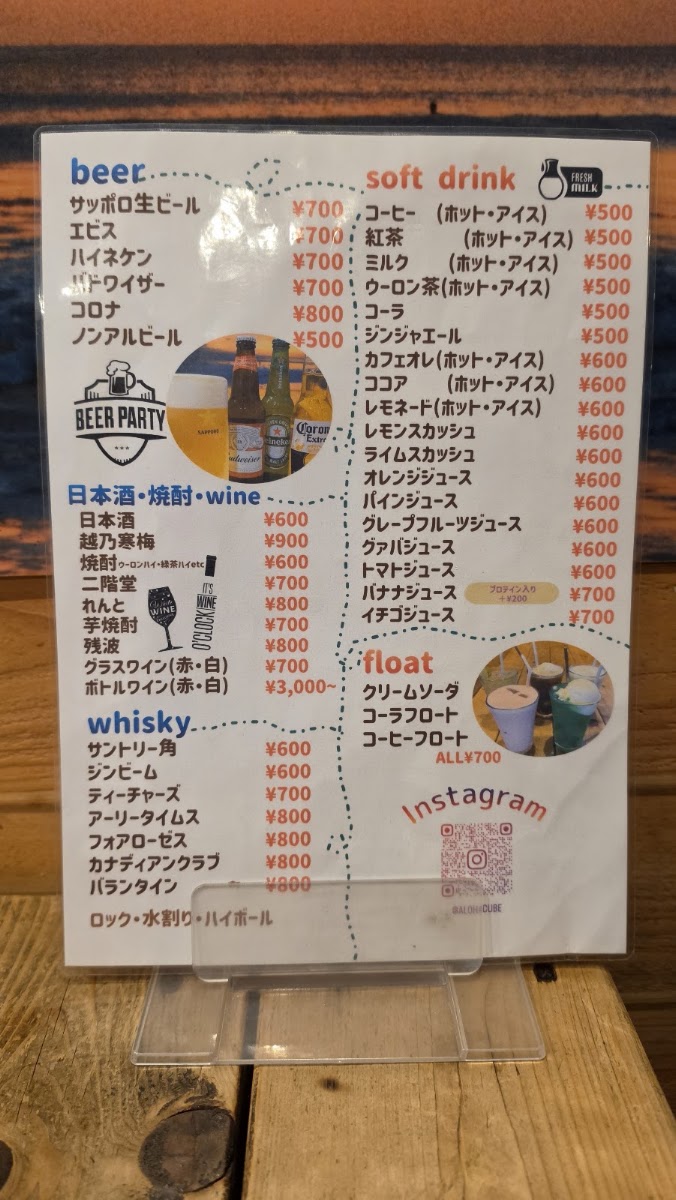 beer
サッポロ生ビール ¥700
エビス ¥700
ハイネケン ¥700
バドワイザー ¥700
コロナ ¥800
ノンアルビール ¥500
BEER PARTY
SAPPORO
Budweiser
Heineken
Corona
Extra
日本酒・焼酎・wine
日本酒 ¥600
越乃寒梅 ¥900
焼酎 ウーロンハイ・緑茶ハイetc ¥600
二階堂 ¥700
れんと ¥800
芋焼酎 ¥700
残波 ¥800
グラスワイン(赤・白) ¥700
ボトルワイン(赤・白) ¥3,000~
WINE
IT'S WINE O'CLOCK
whisky
サントリー角 ¥600
ジンビーム ¥600
ティーチャーズ ¥700
アーリータイムス ¥800
フォアローゼス ¥800
カナディアンクラブ ¥800
バランタイン ¥800
ロック・水割り・ハイボール
soft drink
FRESH
MILK
コーヒー (ホット・アイス) ¥500
紅茶 (ホット・アイス) ¥500
ミルク (ホット・アイス) ¥500
ウーロン茶(ホット・アイス) ¥500
コーラ ¥500
ジンジャエール ¥500
カフェオレ(ホット・アイス) ¥600
ココア (ホット・アイス) ¥600
レモネード(ホット・アイス) ¥600
レモンスカッシュ ¥600
ライムスカッシュ ¥600
オレンジジュース ¥600
パインジュース ¥600
グレープフルーツジュース ¥600
グァバジュース ¥600
トマトジュース ¥600
バナナジュース プロテイン入り +¥200 ¥700
イチゴジュース ¥700
float
クリームソーダ
コーラフロート
コーヒーフロート
ALL¥700
Instagram
@ALOHACUBE